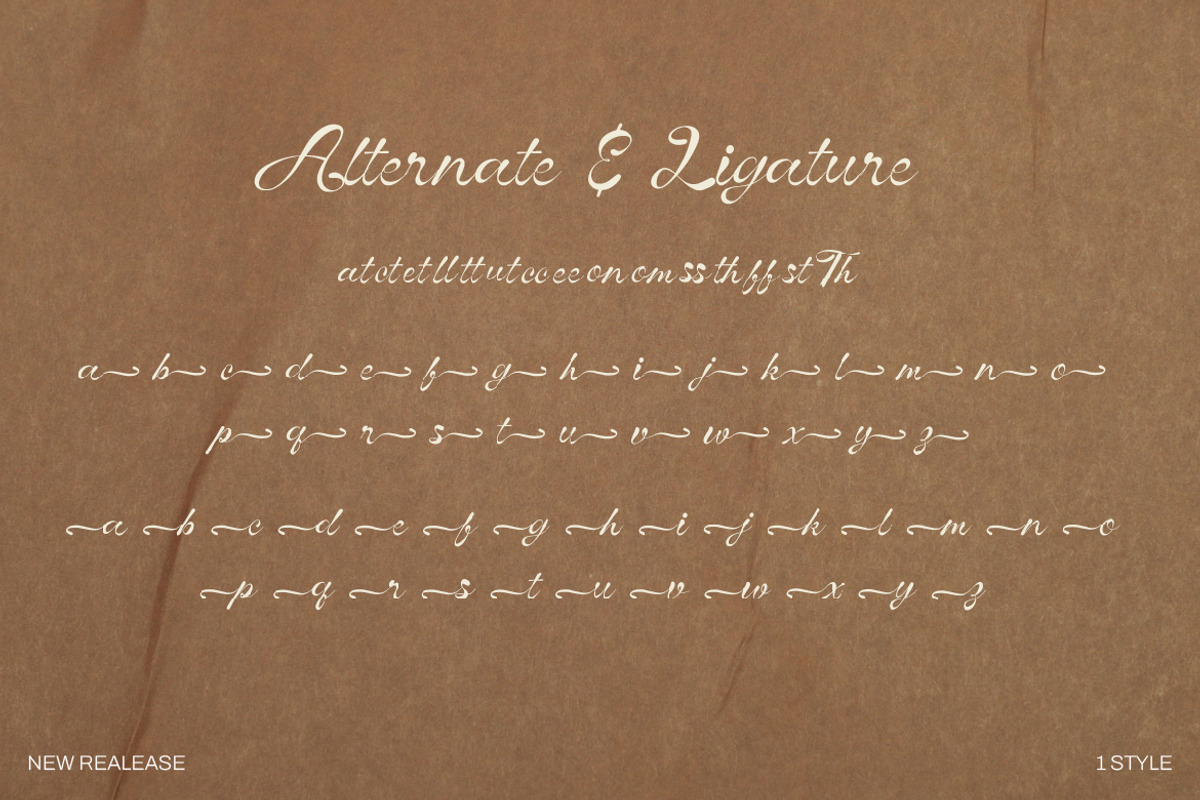 Alternate & Ligature
atctetllttutcceeonomssthffstTh
a b c d e f g h i j k l m n o
p q r s t u v w x y z
a b c d e f g h i j k l m n o
p q r s t u v w x y z
NEW REALEASE
1 STYLE